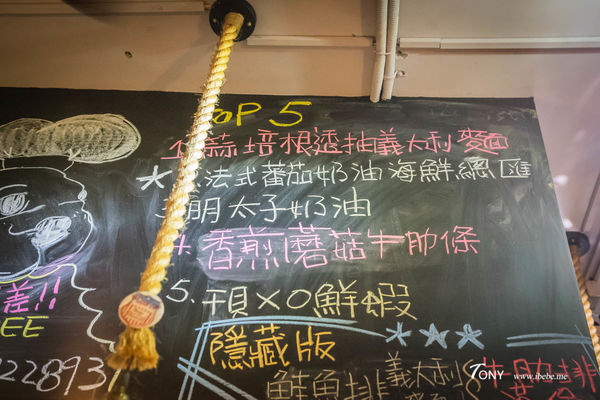 TOP 5
1.蒜培根透抽義大利麵
法式蕃茄奶油海鮮總匯
3.明太子奶油
4.香煎蘑菇牛肋條
5.干貝XO鮮蝦
隱藏版
鮮魚排義大利
牛肋排
差!!
EE
22893
TONY www.ibebe.me